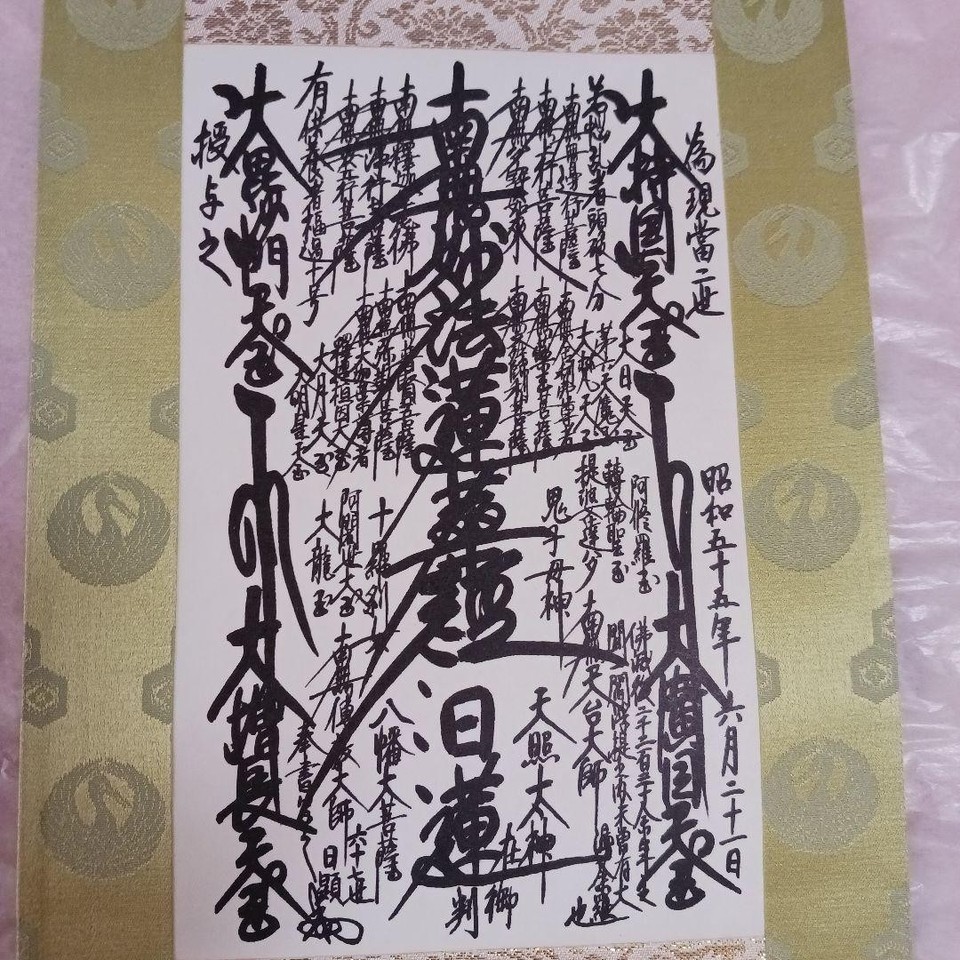 為現當二世
昭和五十五年六月二十一日
大持国天王
大廣目天王
若悩乱者頭破七分
南無無辺行菩薩
南無上行菩薩
南無多宝如来
大日天王
第六天魔王
大梵天王
南無舎利弗尊者
南無薬王菩薩
南無文殊師利菩薩
阿修羅王
轉輪聖王
提婆達多
鬼子母神
佛滅後二千二百三十余年之
間一閻浮提之内未曽有大
漫荼羅
也
南無天台大師
天照太神
南無妙法蓮華經
日蓮
在御
判
南無釋迦牟尼佛
南無浄行菩薩
南無安立行菩薩
有供養者福過十号
南無普賢菩薩
南無弥勒菩薩
南無大迦葉尊者
釋提桓因大王
大月天王
明星天王
十羅刹女
阿闍世大王
大龍王
八幡大菩薩
南無傳教大師
六十七世
日顕
奉書写之
大毘沙門天王
大増長天王
授与之